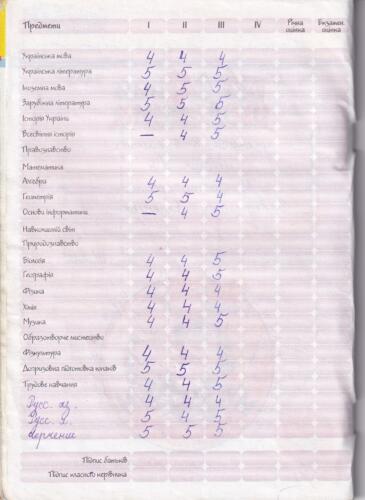 Предмети I II III IV Річна оцінка Екзамен. оцінка
Українська мова 4 4 4
Українська література 5 5 5
Іноземна мова 4 5 5
Зарубіжна література 5 5 5
Історія України 4 4 5
Всесвітня історія — 4 5
Правознавство
Математика
Алгебра 4 4 4
Геометрія 5 5 4
Основи інформатики — 4 5
Навколишній світ
Природознавство
Біологія 4 4 5
Географія 4 4 5
Фізика 4 4 4
Хімія 4 4 4
Музика 4 4 5
Образотворче мистецтво
Фізкультура 4 4 4
Допризовна підготовка юнаків 5 5 5
Трудове навчання 4 4 5
Русс. яз. 4 4 4
Русс. л. 5 4 5
Черчение 5 5 5
Підпис батьків
Підпис класного керівника